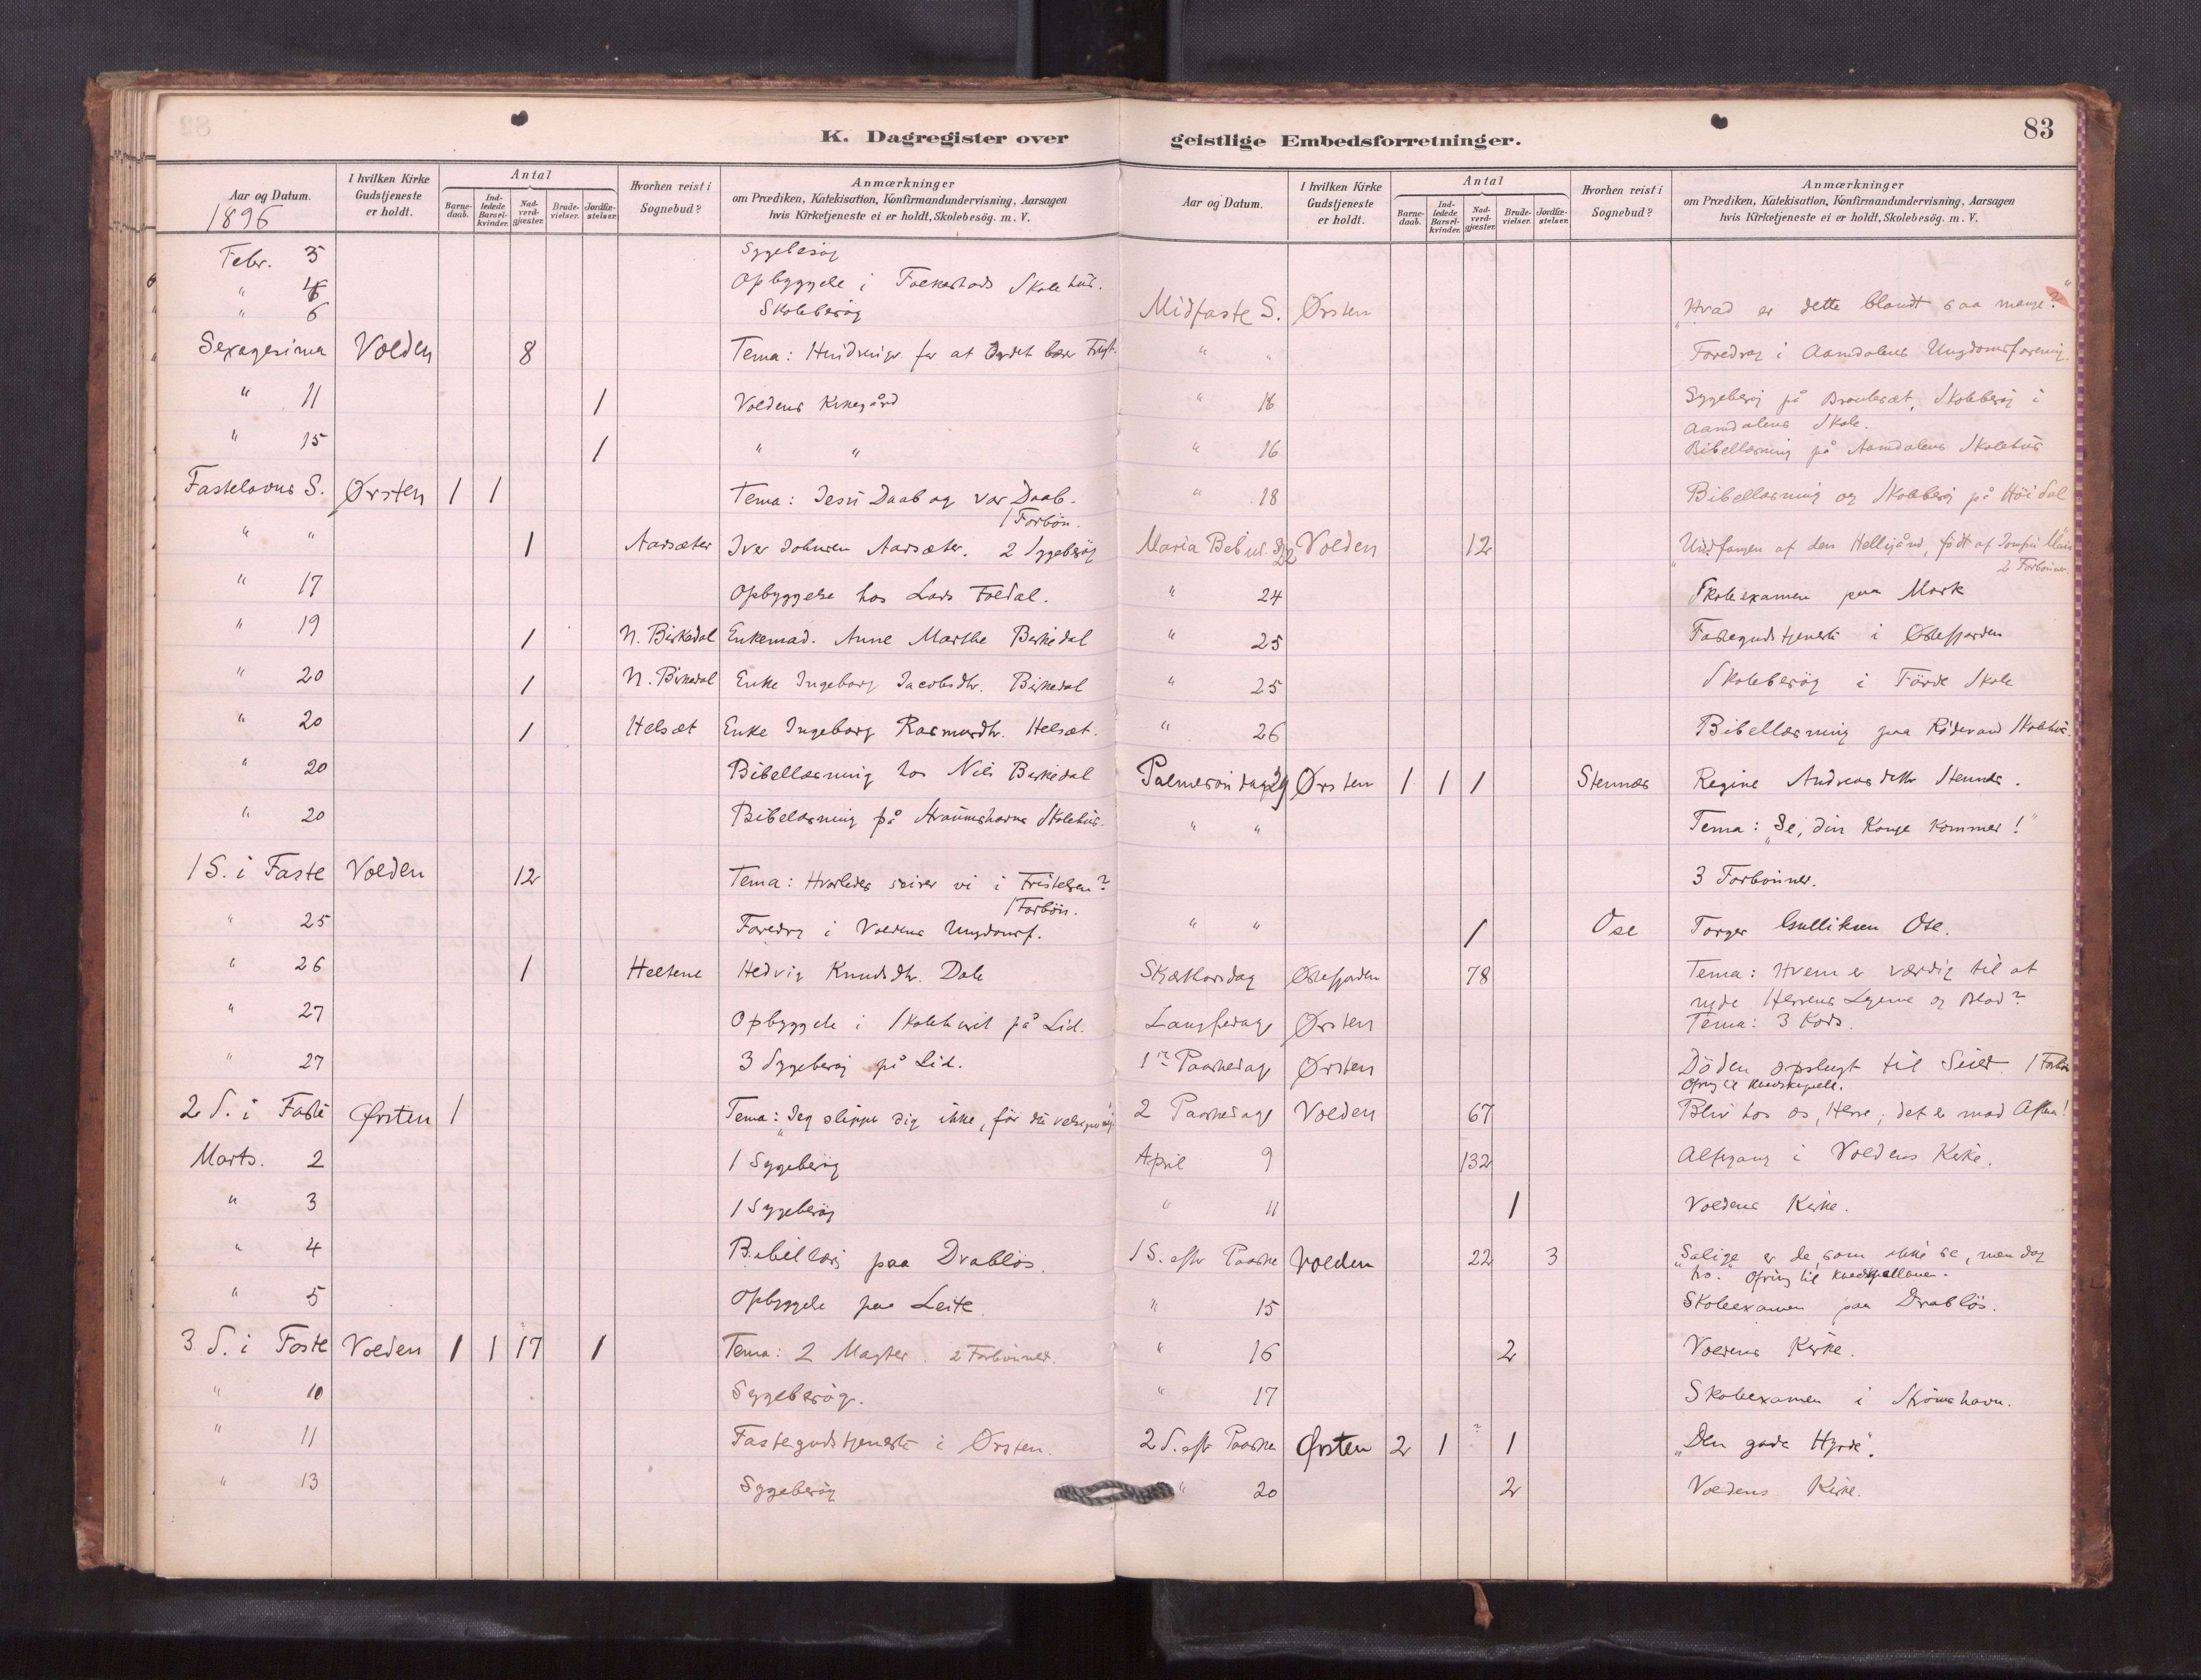 K. Dagregister over
Aar og Datum.
1896
I hvilken Kirke Gudstjeneste er holdt.
Antal
Barne-daab.
Ind-ledede Barsel-kvinder.
Nad-verd-gjæster.
Brude-vielser.
Jordfæ-stelser.
Hvorhen reist i Sognebud?
Anmærkninger
om Prædiken, Katekisation, Konfirmandundervisning, Aarsagen
hvis Kirketjeneste ei er holdt, Skolebesög. m. V.
Febr. 5 Sygebesøg
" Opbyggelse i Skolehus.
" 6 Skolebesøg
Sexagesima Volden 8 Tema: Hindringer for at Ordet bær Frugt.
" 11 1 Voldens Kirkegård
" 15 1 " "
Fastelavns S. Ørsten 1 1 Tema: Jesu Daab og vor Daab.
1 Forbön.
" " 1 Aarsæter Iver Johnsen Aarsæter. 2 Sygebesøg
" 17 Opbyggelse hos Lars
" 19 1 N. Birkedal Enkemad. Anne Marthe Birkedal
" 20 1 N. Birkedal Enke Ingeborg Jacobsdtr. Birkedal
" 20 1 Helsæt Enke Ingeborg Rasmusdtr. Helsæt.
" 20 Bibellæsning hos Nils Birkedal
" 20 Bibelæsning på Skolehus.
1 S. i Faste Volden 12 Tema: Hvorledes seirer vi i Fristelsen?
1 Forbön.
" 25 Foredrag i Voldens Ungdomsf.
" 26 1 Heltene Hedvig Knudsdtr. Dale
" 27 Opbyggelse i Skolehuset på Lid.
" 27 3 Sygebesøg på Lid.
2 S. i Faste Ørsten 1 Tema: "Jeg slipper dig ikke, för du velsigner mig
Marts. 2 1 Sygebesøg
" 3 1 Sygebesøg
" 4 paa Drabløs.
" 5 Opbyggelse paa Leite.
3 S. i Faste Volden 1 1 17 1 Tema: 2 Magter. 2 Forbönner.
" 10 Sygebesøg.
" 11 Fastegudstjeneste i Ørsten.
" 13 Sygebesøg
geistlige Embedsforretninger.
83
Aar og Datum.
I hvilken Kirke Gudstjeneste er holdt.
Antal
Barne-daab.
Ind-ledede Barsel-kvinder.
Nad-verd-gjæster.
Brude-vielser.
Jordfæ-stelser.
Hvorhen reist i Sognebud?
Anmærkninger
om Prædiken, Katekisation, Konfirmandundervisning, Aarsagen
hvis Kirketjeneste ei er holdt, Skolebesög. m. V.
Midfaste S. Ørsten "Hvad er dette blandt saa mange?"
" " Foredrag i Aamdalens Ungdomsforening.
" 16 Sygebesøg på Skolebesøg i
Aamdalens Skole.
" 16 Bibellæsning på Aamdalens Skolehus
" 18 Bibellæsning og Skolebesøg på Höidal
Maria Beb. 22 Volden 12 Undfangen af den Helligånd, født af Jomfru Maria
2 Forbönner.
" 24 Skoleexamen paa Mork
" 25 Fastegudstjeneste i Østefjorden
" 25 Skolebesøg i Förde Skole
" 26 Bibellæsning paa Skolehus.
Palmesöndag 29 Ørsten 1 1 1 Stennæs Regine Andreasdatter Stennes.
" " Tema: "Se, din Konge kommer!"
3 Forbönner.
" " 1 Ose Torger Gulliksen Ose.
Skærtorsdag Østefjorden 78 Tema: Hvem er værdig til at
nyde Herrens Legeme og Blod?
Langfredag Ørsten Tema: 3 Kors.
1ste Paaskedag Ørsten Döden opslugt til Seier. 1 Forbön
2 Paaskedag Volden 67 Bliv hos os, Herre, det er mod Aften!
April 9 132 Altergang i Voldens Kirke.
" 11 1 Voldens Kirke.
1 S. efter Paaske Volden 22 3 "Salige er de, som ikke se, men dog
tro." Ofring til
" 15 Skoleexamen paa Drabløs.
" 16 2 Voldens Kirke.
" 17 Skoleexamen i Strömshavn.
2 S. eftr Paaske Ørsten 2 1 1 "Den gode Hyrde".
" 20 2 Voldens Kirke.